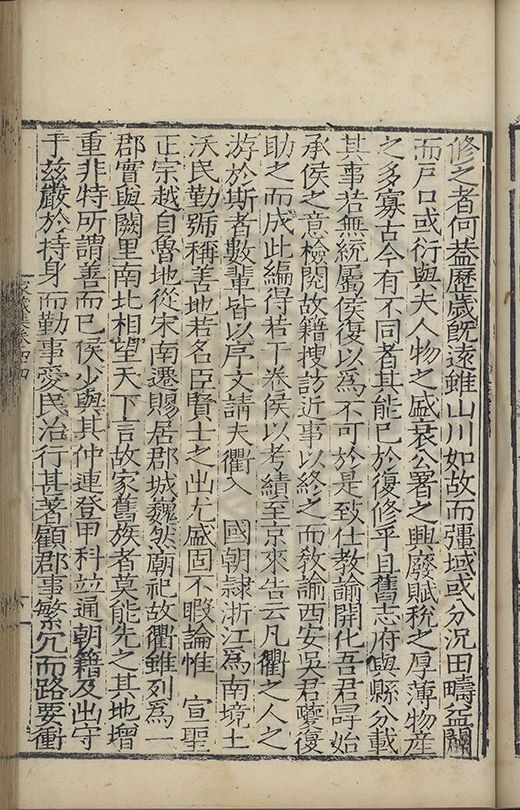 修之者何蓋歷歲旣遠雖山川如故而彊域或分况田疇益闢
而戶口或衍與夫人物之盛衰公署之興廢賦稅之厚薄物産
之多寡古今有不同者其能已於復修乎且舊志府與縣分載
其事若無統屬侯復以爲不可於是致仕敎諭開化吾君冔始
承侯之意檢閱故籍搜訪近事以終之而敎諭西安吳君夔復
助之而成此編得若干卷侯以考績至京來告云凡衢之人之
游於斯者數輩皆以序文請夫衢入 國朝隷浙江爲南境土
沃民勤號稱善地若名臣賢士之出尤盛固不暇論惟 宣聖
正宗越自魯地從宋南遷賜居郡城巍然廟祀故衢雖列爲一
郡實與闕里南北相望天下言故家舊族者莫能先之其地增
重非特所謂善而已侯少與其仲連登甲科竝通朝籍及出守
于兹嚴於持身而勤事愛民治行甚著顧郡事繁冗而路要衝